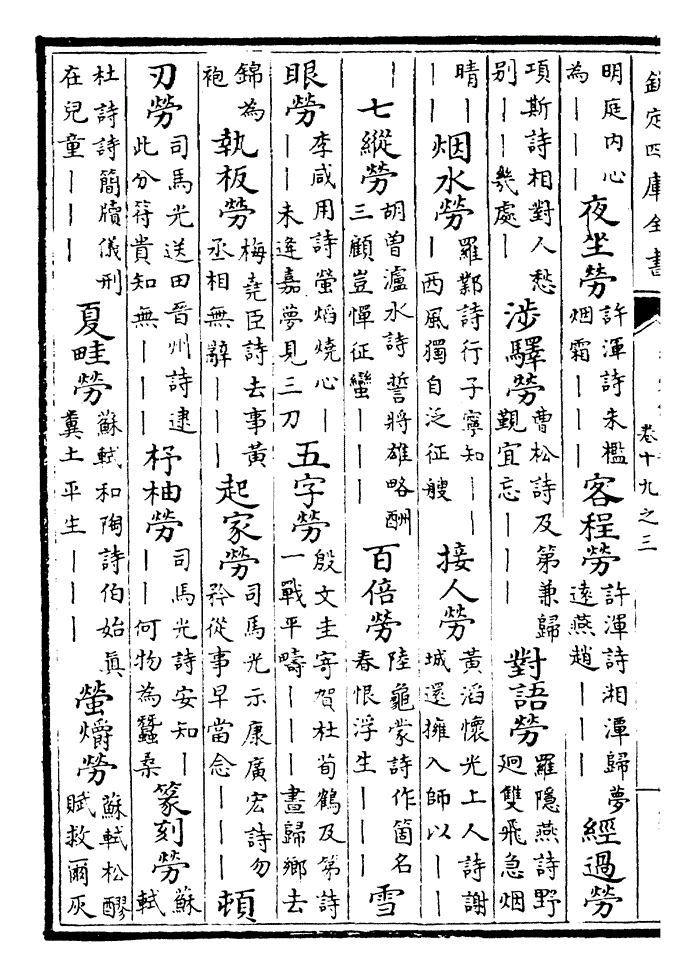 欽定四庫全書
卷十九之三
明庭内心為｜｜｜夜坐勞許渾詩朱檻烟霜｜｜｜客程勞許渾詩湘潭歸夢遠燕趙｜｜｜經過勞
項斯詩相對人愁别｜｜幾處｜涉驛勞曹松詩及第兼歸覲宜忘｜｜｜對語勞羅隱燕詩野迥雙飛急烟
晴｜｜烟水勞羅鄴詩行子寧知｜｜｜西風獨自泛征艘接人勞黃滔懷光上人詩謝城還擁入師以｜｜
｜七縱勞胡曾瀘水詩誓將雄略酬三顧豈憚征蠻｜｜｜百倍勞陸龜蒙詩作箇名春恨浮生｜｜｜雪
眼勞李咸用詩螢熖燒心｜｜｜未逢嘉夢見三刀五字勞殷文圭寄賀杜荀鶴及第詩一戰平疇｜｜｜晝歸鄉去
錦為袍執板勞梅堯臣詩去事黃丞相無辭｜｜｜起家勞司馬光示康廣宏詩勿矜從事早當念｜｜｜頓
刃勞司馬光送田晉州詩逮此分符貴知無｜｜｜杼柚勞司馬光詩安知｜｜｜何物為蠶桑篆刻勞蘇軾
杜詩詩簡牘儀刑在兒童｜｜｜夏畦勞蘇軾和陶詩伯始真糞土平生｜｜｜螢爝勞蘇軾松醪賦救爾灰